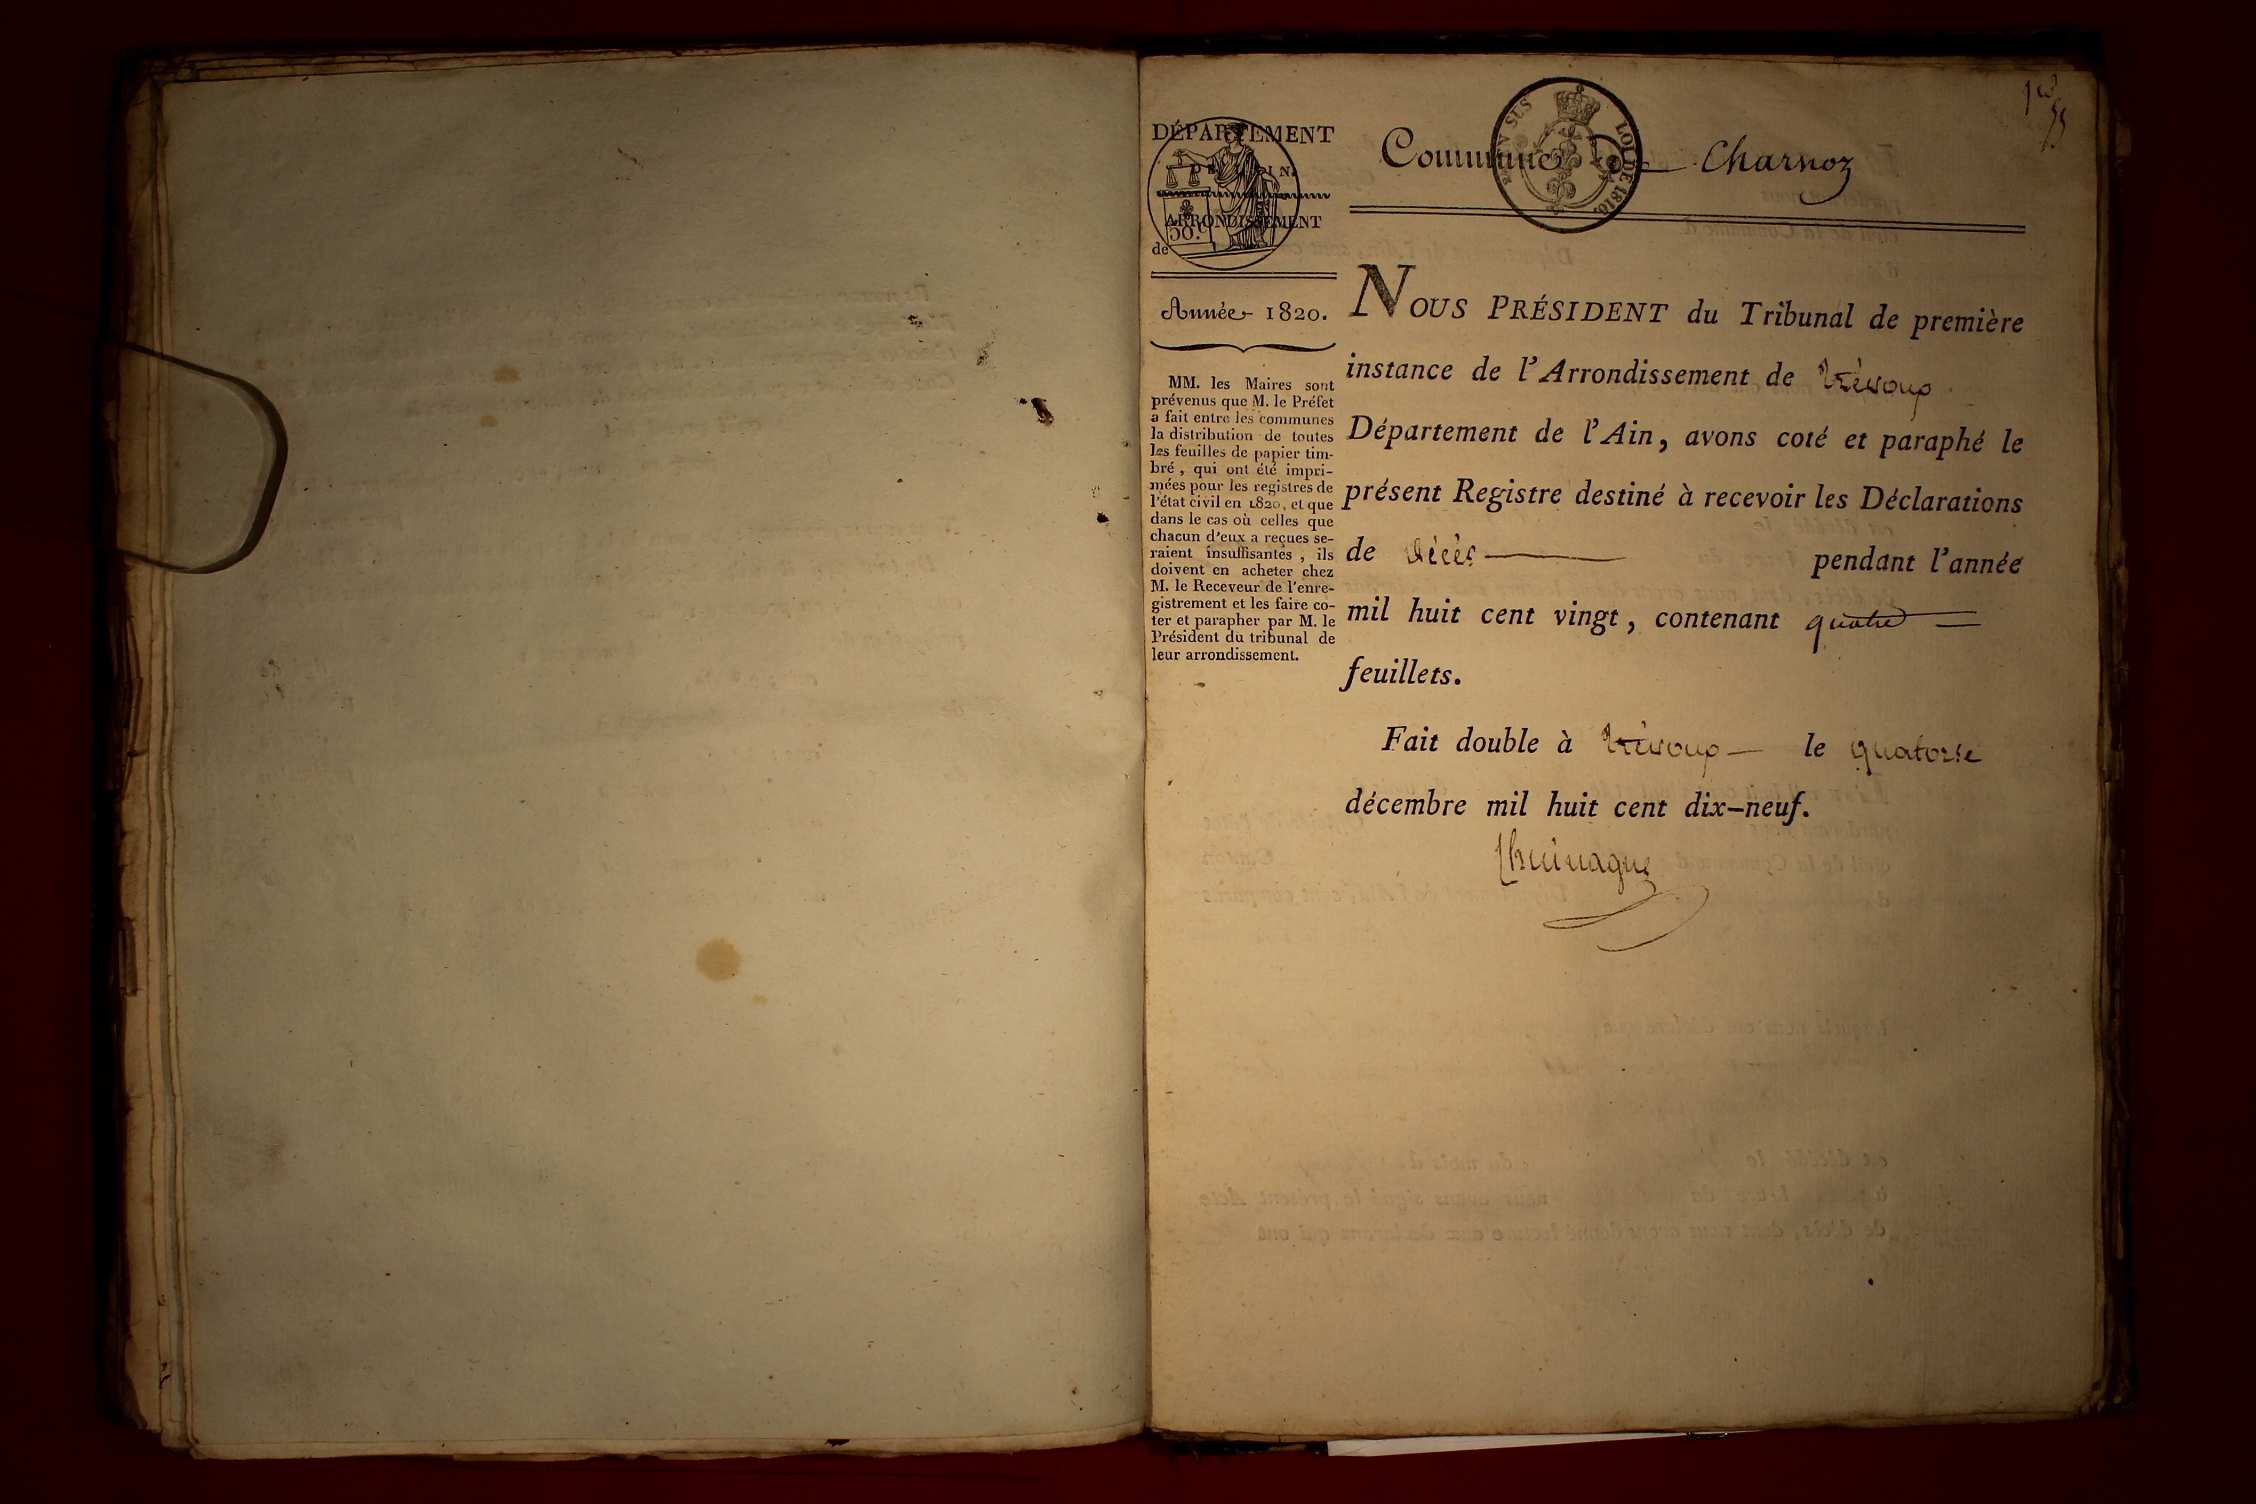 DÉPARTEMENT
ARRONDISSEMENT
de
Année 1820.
MM. les Maires sont
prévenus que M. le Préfet
a fait entre les communes
la distribution de toutes
les feuilles de papier tim-
bré, qui ont été impri-
mées pour les registres de
l'état civil en 1820, et que
dans le cas où celles que
chacun d'eux a reçues se-
raient insuffisantes, ils
doivent en acheter chez
M. le Receveur de l'enre-
gistrement et les faire co-
ter et parapher par M. le
Président du tribunal de
leur arrondissement.
Commune de Charnoz
LOI DE 1816.
EN SUS
NOUS PRÉSIDENT du Tribunal de première
instance de l'Arrondissement de Trévoux
Département de l'Ain, avons coté et paraphé le
présent Registre destiné à recevoir les Déclarations
de décès pendant l'année
mil huit cent vingt, contenant quatre
feuillets.
Fait double à Trévoux le quatorze
décembre mil huit cent dix-neuf.